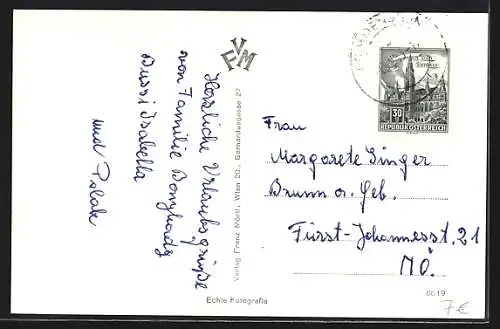 Herzliche Urlaubsgrüße
von Familie Bonyhady
Bussi Isabella
und Polak
VFM
Verlag Franz Mörtl, Wien 20., Gerhardusgasse 27
Echte Fotografie
30
REPUBLIK ÖSTERREICH
Frau
Margarete Singer
Brunn a. Geb.
Fürst-Johannesst. 21
NÖ.
6619
7€